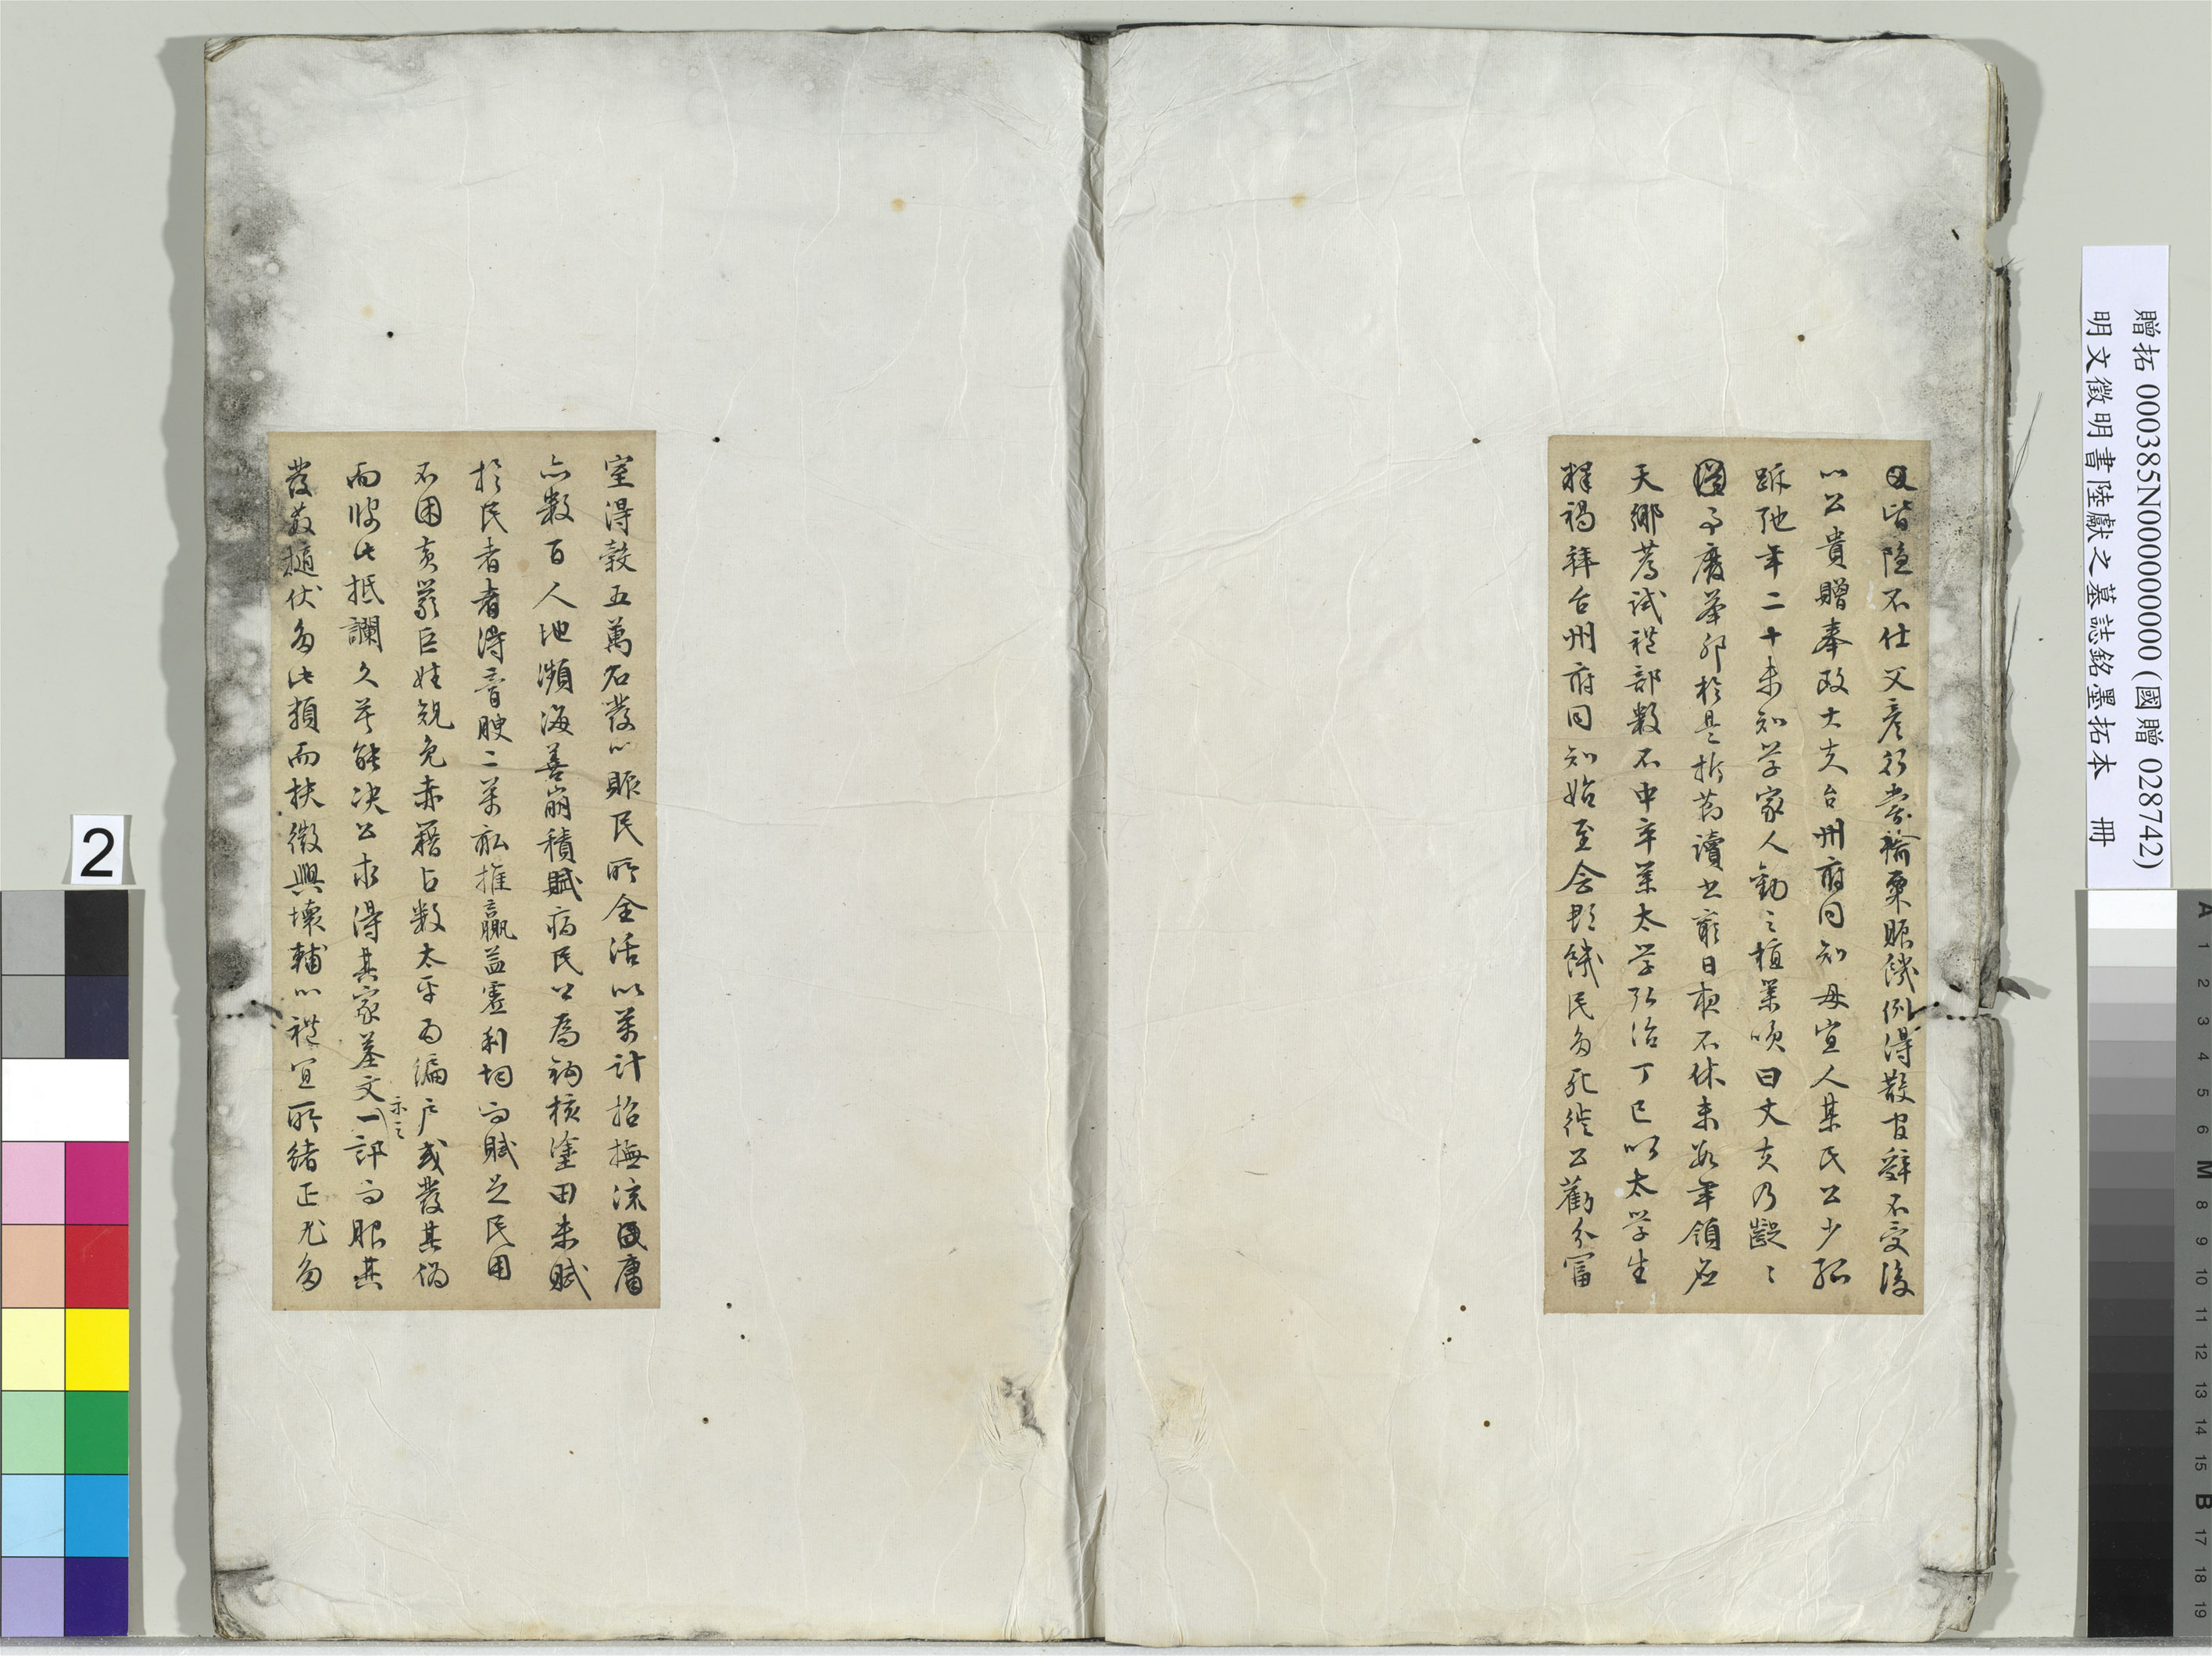 贈拓 000385N000000000 (國贈 028742)
明文徵明書陸獻之墓誌銘墨拓本 冊
皆隐不仕父彦行嘗輸粟賑饑例得散官辭不受後
以公貴贈奉政大夫台州府同知母宜人某氏公少孤
跅弛年二十未知学家人勸之植業唶曰丈夫乃齪〻
畢於是折節讀书窮日夜不休未数年領应
天鄉薦試礼部数不中卒業太学弘治丁巳以太学生
釋褐拜台州府同知始至会郡饑民多死徙公勸分富
室得穀五萬石發以賑民所全活以萬計招撫流庸
亦数百人地瀕海善崩積賦病民公為鉤核塗田未賦
於民者得音腴二萬畝推羸益虚利均而賦足民用
不困黄巖巨姓規免赤籍占数太平為编户或發其偽
而彼此抵讕久莫能决公求得其家墓文示之一訊而服其
發姦擿伏多此類而扶微興壞輔以禮宜所緒正尤多
2
A 1 2 3 4 5 6 M 8 9 10 11 12 13 14 15 B 17 18 19